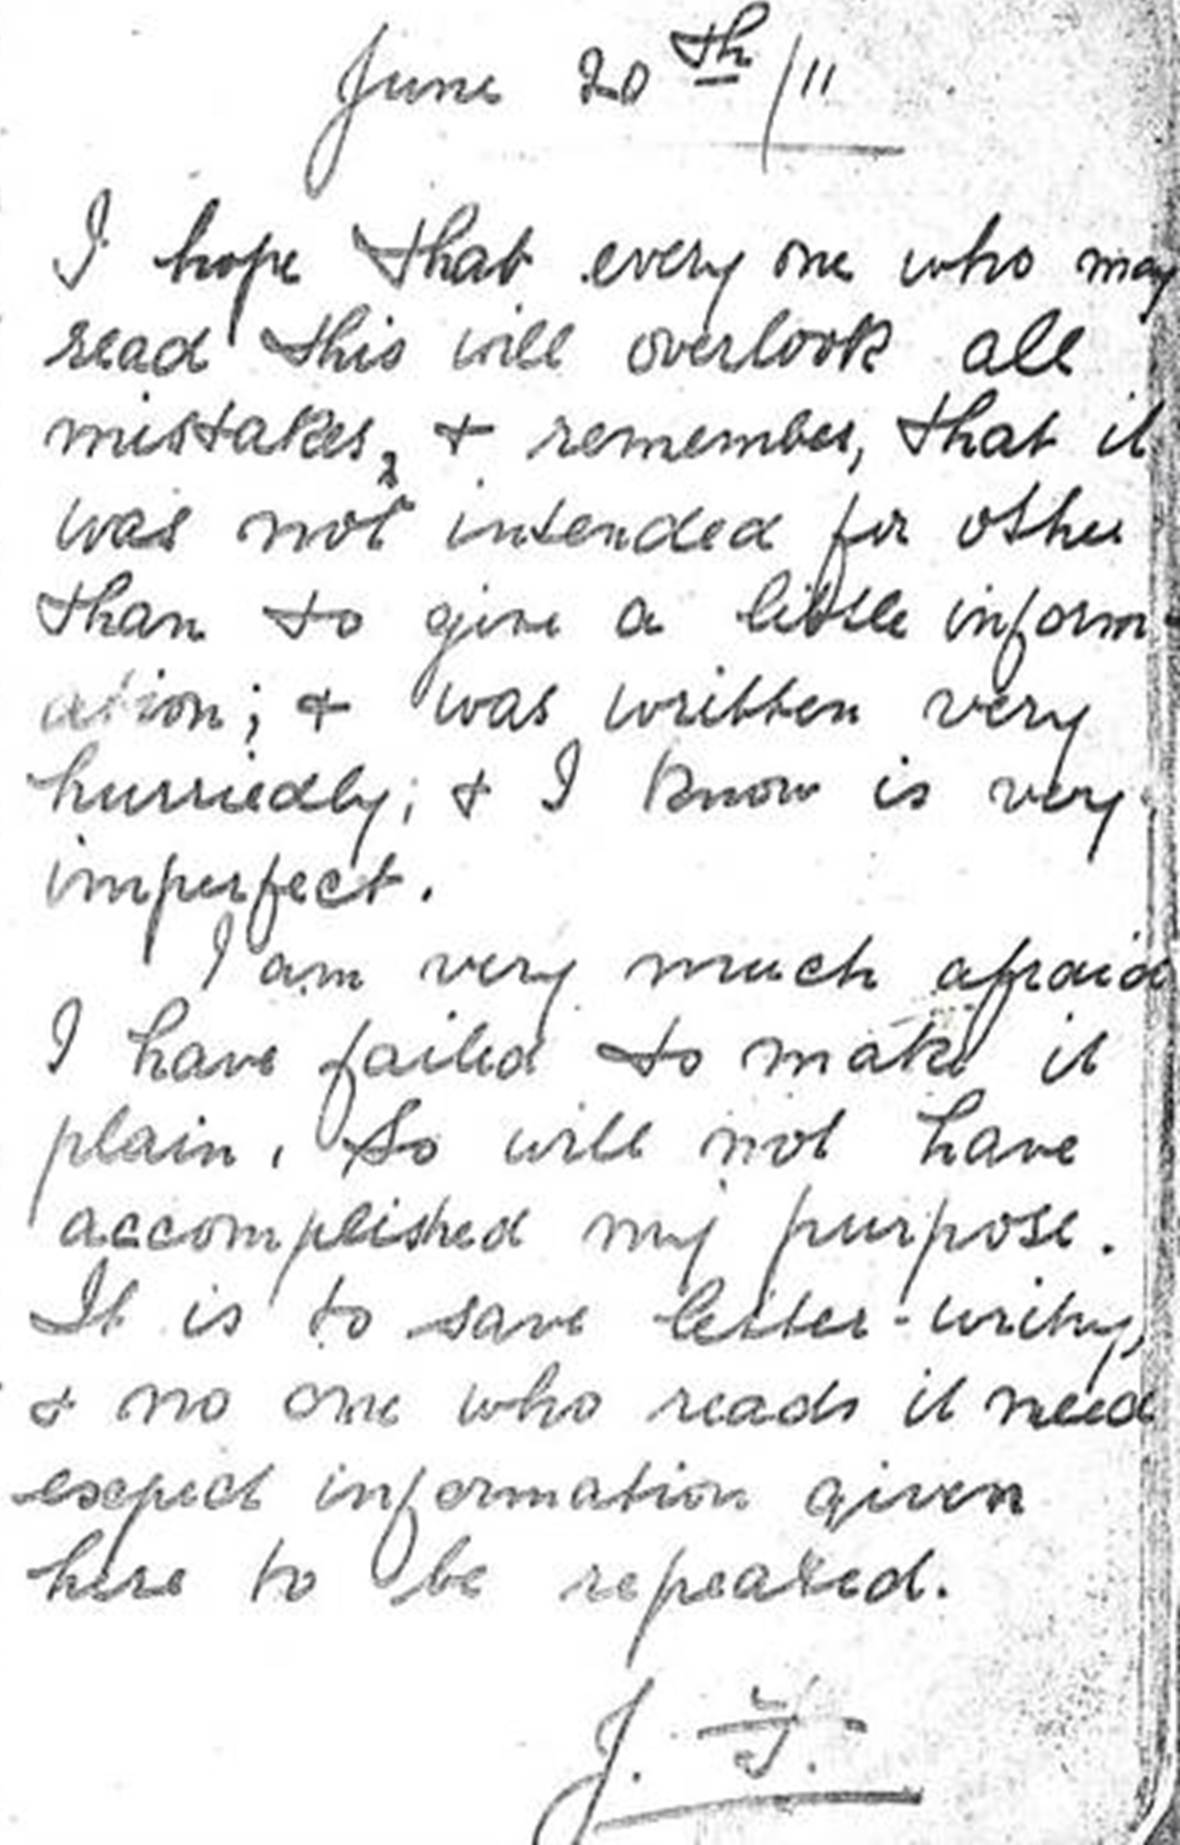 June 20th/11
I hope that every one who may
read this will overlook all
mistakes, & remember, that it
was not intended for other
than to give a little inform-
ation; & was written very
hurriedly; & I know is very
imperfect.
I am very much afraid
I have failed to make it
plain, So will not have
accomplished my purpose.
It is to save letter-writing,
& no one who reads it need
expect information given
here to be repeated.
J. F.